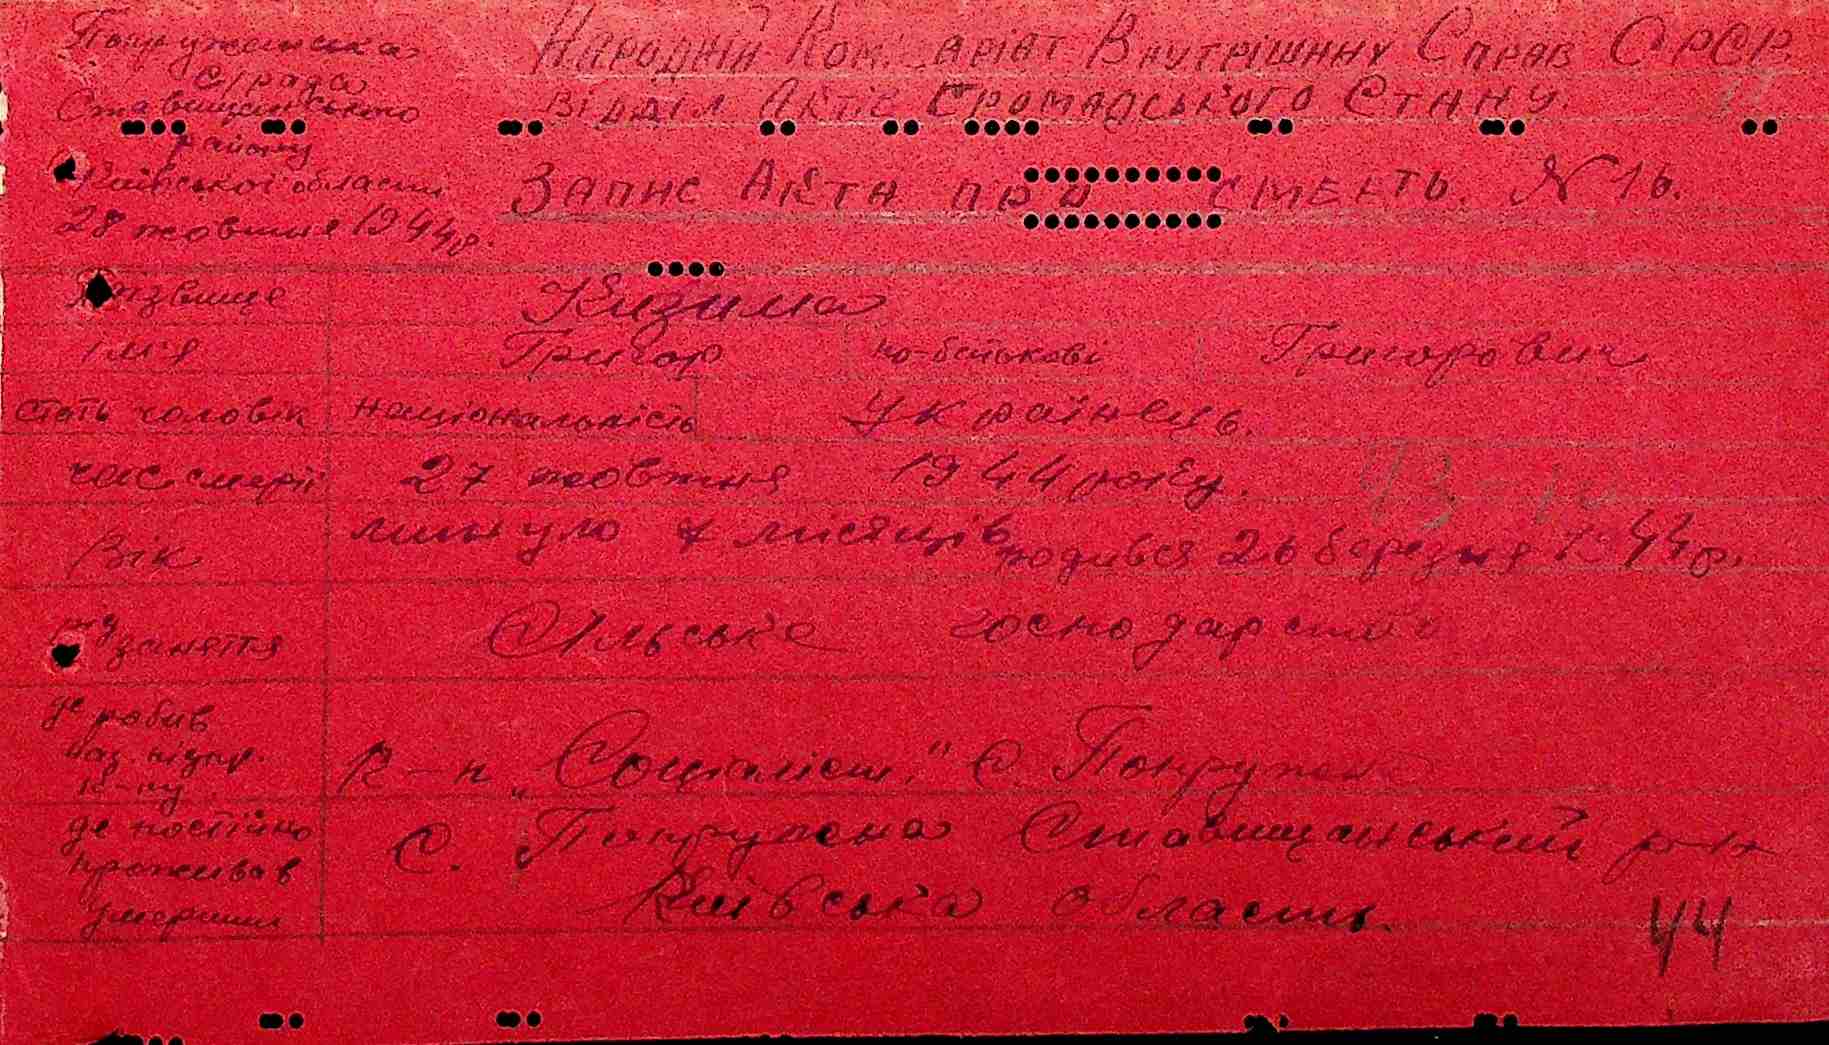 Попружинська
с/рада
Ставищенського
району
Київської области
28 жовтня 1944 р.
Народній Ком. аріат Внутрішних Справ СРСР.
Відділ Актів Громадського Стану.
Запис Акта про смерть. N 16.
Прізвище Кизима
ім'я Григор по-батькові Григорович
стать чоловік національність Українець.
час смерті 27 жовтня 1944 року.
Вік минуло 7 місяців родився 26 березня 1944 р.
заняття Сільське господарство
де робив
наз. підпр.
к-пу
К-п „Соціаліст." с. Попружена
де постійно
проживав
умерший
с. Попружена Ставищанський р-н
Київська область.
44